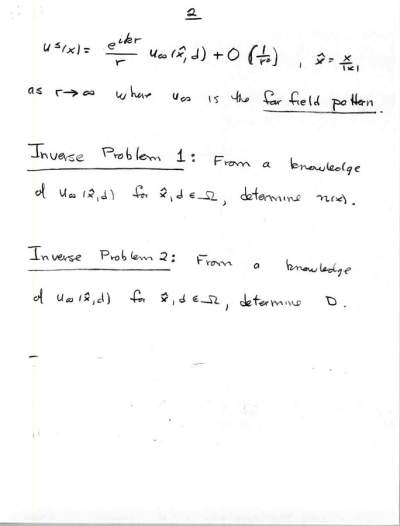 2
u^s(x) = e^{ikr}/r u∞(x̂,d) + O(1/r²), x̂ = x/|x|
as r→∞ where u∞ is the far field pattern.
Inverse Problem 1: From a knowledge
of u∞(x̂,d) for x̂,d ∈ Ω, determine n(x).
Inverse Problem 2: From a knowledge
of u∞(x̂,d) for x̂,d ∈ Ω, determine D.